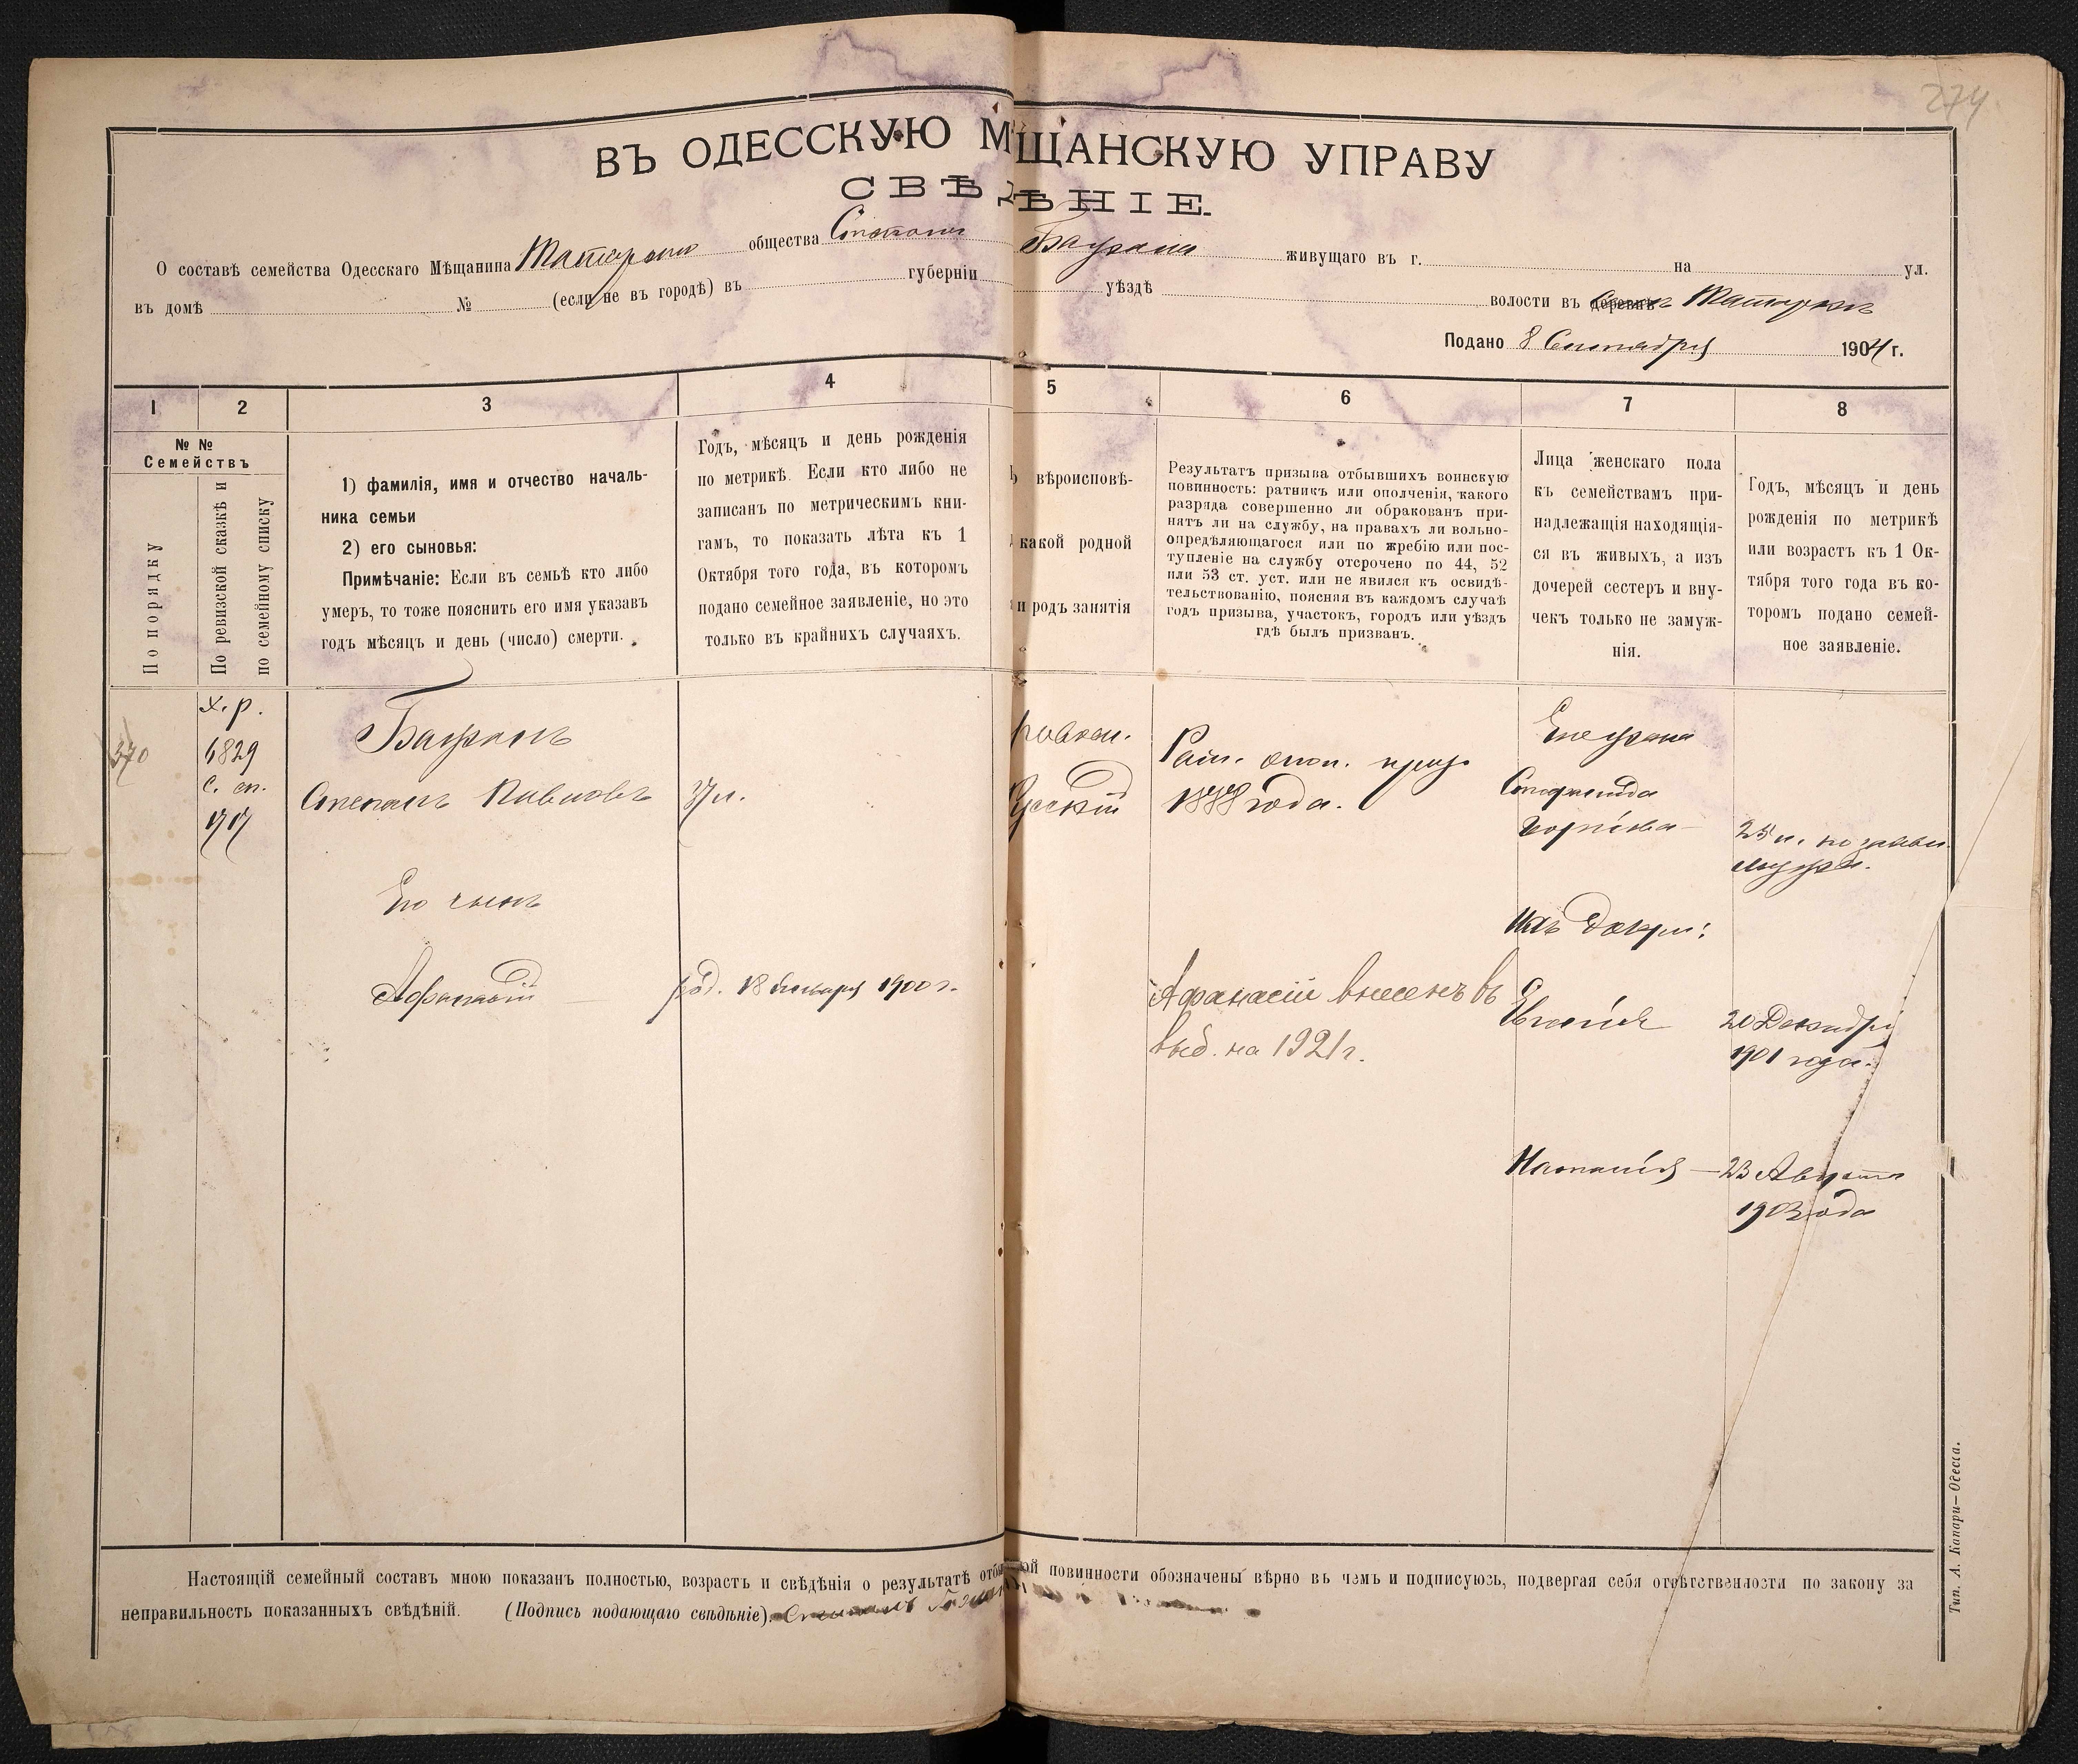 274.
ВЪ ОДЕССКУЮ МЩАНСКУЮ УПРАВУ
СВѢДѢНІЕ.
О составѣ семейства Одесскаго Мѣщанина общества Степана Баурана живущаго въ г. на ул.
въ домѣ № (если не въ городѣ) въ губерніи уѣздѣ волости въ деревнѣ
Подано 8 Сентября 1904 г.
1 2 3 4 5 6 7 8
№ №
Семействъ
По порядку
По ревизской сказкѣ и
по семейному списку
1) фамилія, имя и отчество началь-
ника семьи
2) его сыновья:
Примѣчаніе: Если въ семьѣ кто либо
умеръ, то тоже пояснить его имя указавъ
годъ мѣсяцъ и день (число) смерти.
Годъ, мѣсяцъ и день рожденія
по метрикѣ. Если кто либо не
записанъ по метрическимъ кни-
гамъ, то показать лѣта къ 1
Октября того года, въ которомъ
подано семейное заявленіе, но это
только въ крайнихъ случаяхъ.
вѣроисповѣ-
какой родной
и родъ занятія
Результатъ призыва отбывшихъ воинскую
повинность: ратникъ или ополченія, какого
разряда совершенно ли обракованъ при-
нятъ ли на службу, на правахъ ли вольно-
опредѣляющагося или по жребію или пос-
тупленіе на службу отсрочено по 44, 52
или 53 ст. уст. или не явился къ освидѣ-
тельствованію, поясняя въ каждомъ случаѣ
годъ призыва, участокъ, городъ или уѣздъ
гдѣ былъ призванъ.
Лица женскаго пола
къ семействамъ при-
надлежащія находящія-
ся въ живыхъ, а изъ
дочерей сестеръ и вну-
чекъ только не замуж-
нія.
Годъ, мѣсяцъ и день
рожденія по метрикѣ
или возрастъ къ 1 Ок-
тября того года въ ко-
торомъ подано семей-
ное заявленіе.
370
х. р.
6829
с. сп.
Бауранъ
Степанъ Павловъ
37 л.
Его сынъ
Афанасій
род. 18 Января 1900 г.
Рат. опол. приз.
1888 года.
Афанасій внесенъ въ
выб. на 1921 г.
Его жена
25 л. по заявл.
мужа.
Ихъ дочери:
Евгенія
20 Декабря
1901 года.
Наталія
23 Августа
1903 года
Настоящій семейный составъ мною показанъ полностью, возрастъ и свѣдѣнія о результатѣ отбы ой повинности обозначены вѣрно въ чемъ и подписуюсь, подвергая себя отвѣтственности по закону за
неправильность показанныхъ свѣдѣній. (Подпись подающаго свѣдѣніе). Степанъ
Тип. А. Капари—Одесса.